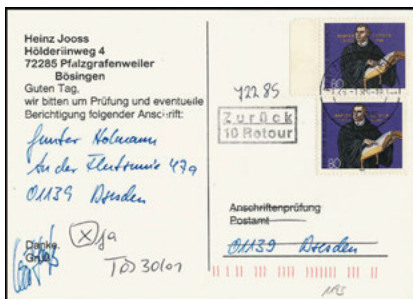 Heinz Jooss
Hölderiinweg 4
72285 Pfalzgrafenweiler
Bösingen
Guten Tag,
wir bitten um Prüfung und eventuelle
Berichtigung folgender Anschrift:
Gunter Hofmann
An der Flutrinne 47a
01139 Dresden
Danke.
Gruß
ja
Töl 30/01
72285
Zurück
10 Retour
80
80
Anschriftenprüfung
Postamt
01139 Dresden
1193